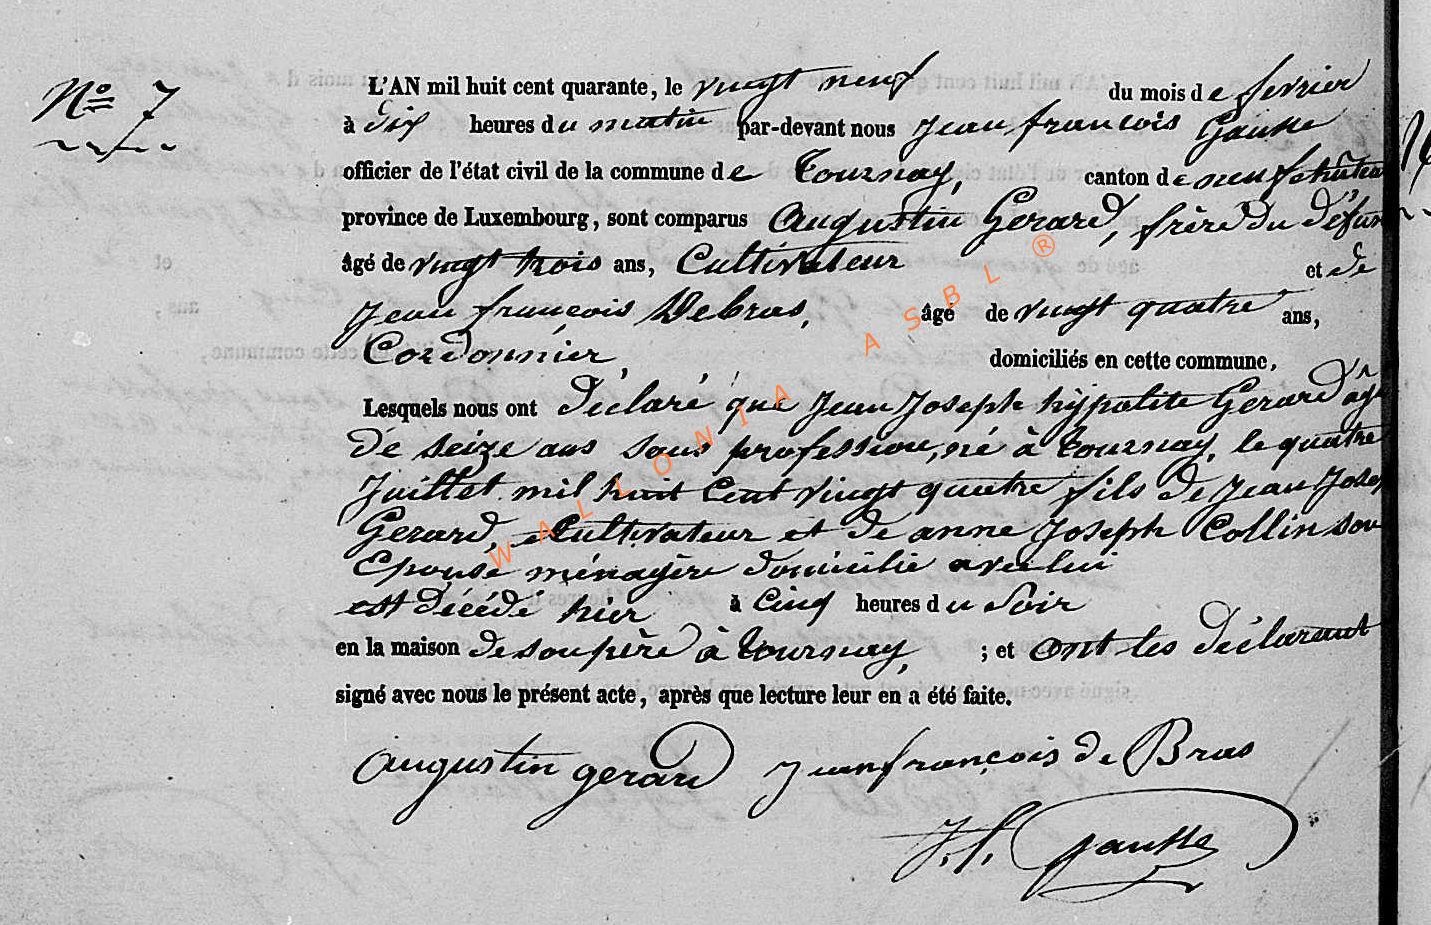 N° 7
L'AN mil huit cent quarante, le vingt neuf du mois de fevrier
à dix heures du matin par-devant nous Jean françois Gausse
officier de l'état civil de la commune de Tournay, canton de neufchâteau
province de Luxembourg, sont comparus Augustin Gerard, frère du défun
âgé de vingt trois ans, Cultivateur et de
Jean françois Debras, âgé de vingt quatre ans,
Cordonnier, domiciliés en cette commune.
Lesquels nous ont déclaré que Jean Joseph hÿpolite Gerard âgé
de seize ans sans profession, né à Tournay, le quatre
Juillet mil huit Cent vingt quatre fils de Jean Josep
Gerard, Cultivateur et de anne Joseph Collin son
Epouse ménagère domicilié avec lui
est décédé hier à Cinq heures du Soir
en la maison de son père à Tournay, ; et ont les déclarant
signé avec nous le présent acte, après que lecture leur en a été faite.
augustin gerard Jean françois de Bras
J. f. Gausse
WALLONIA ASBL ®